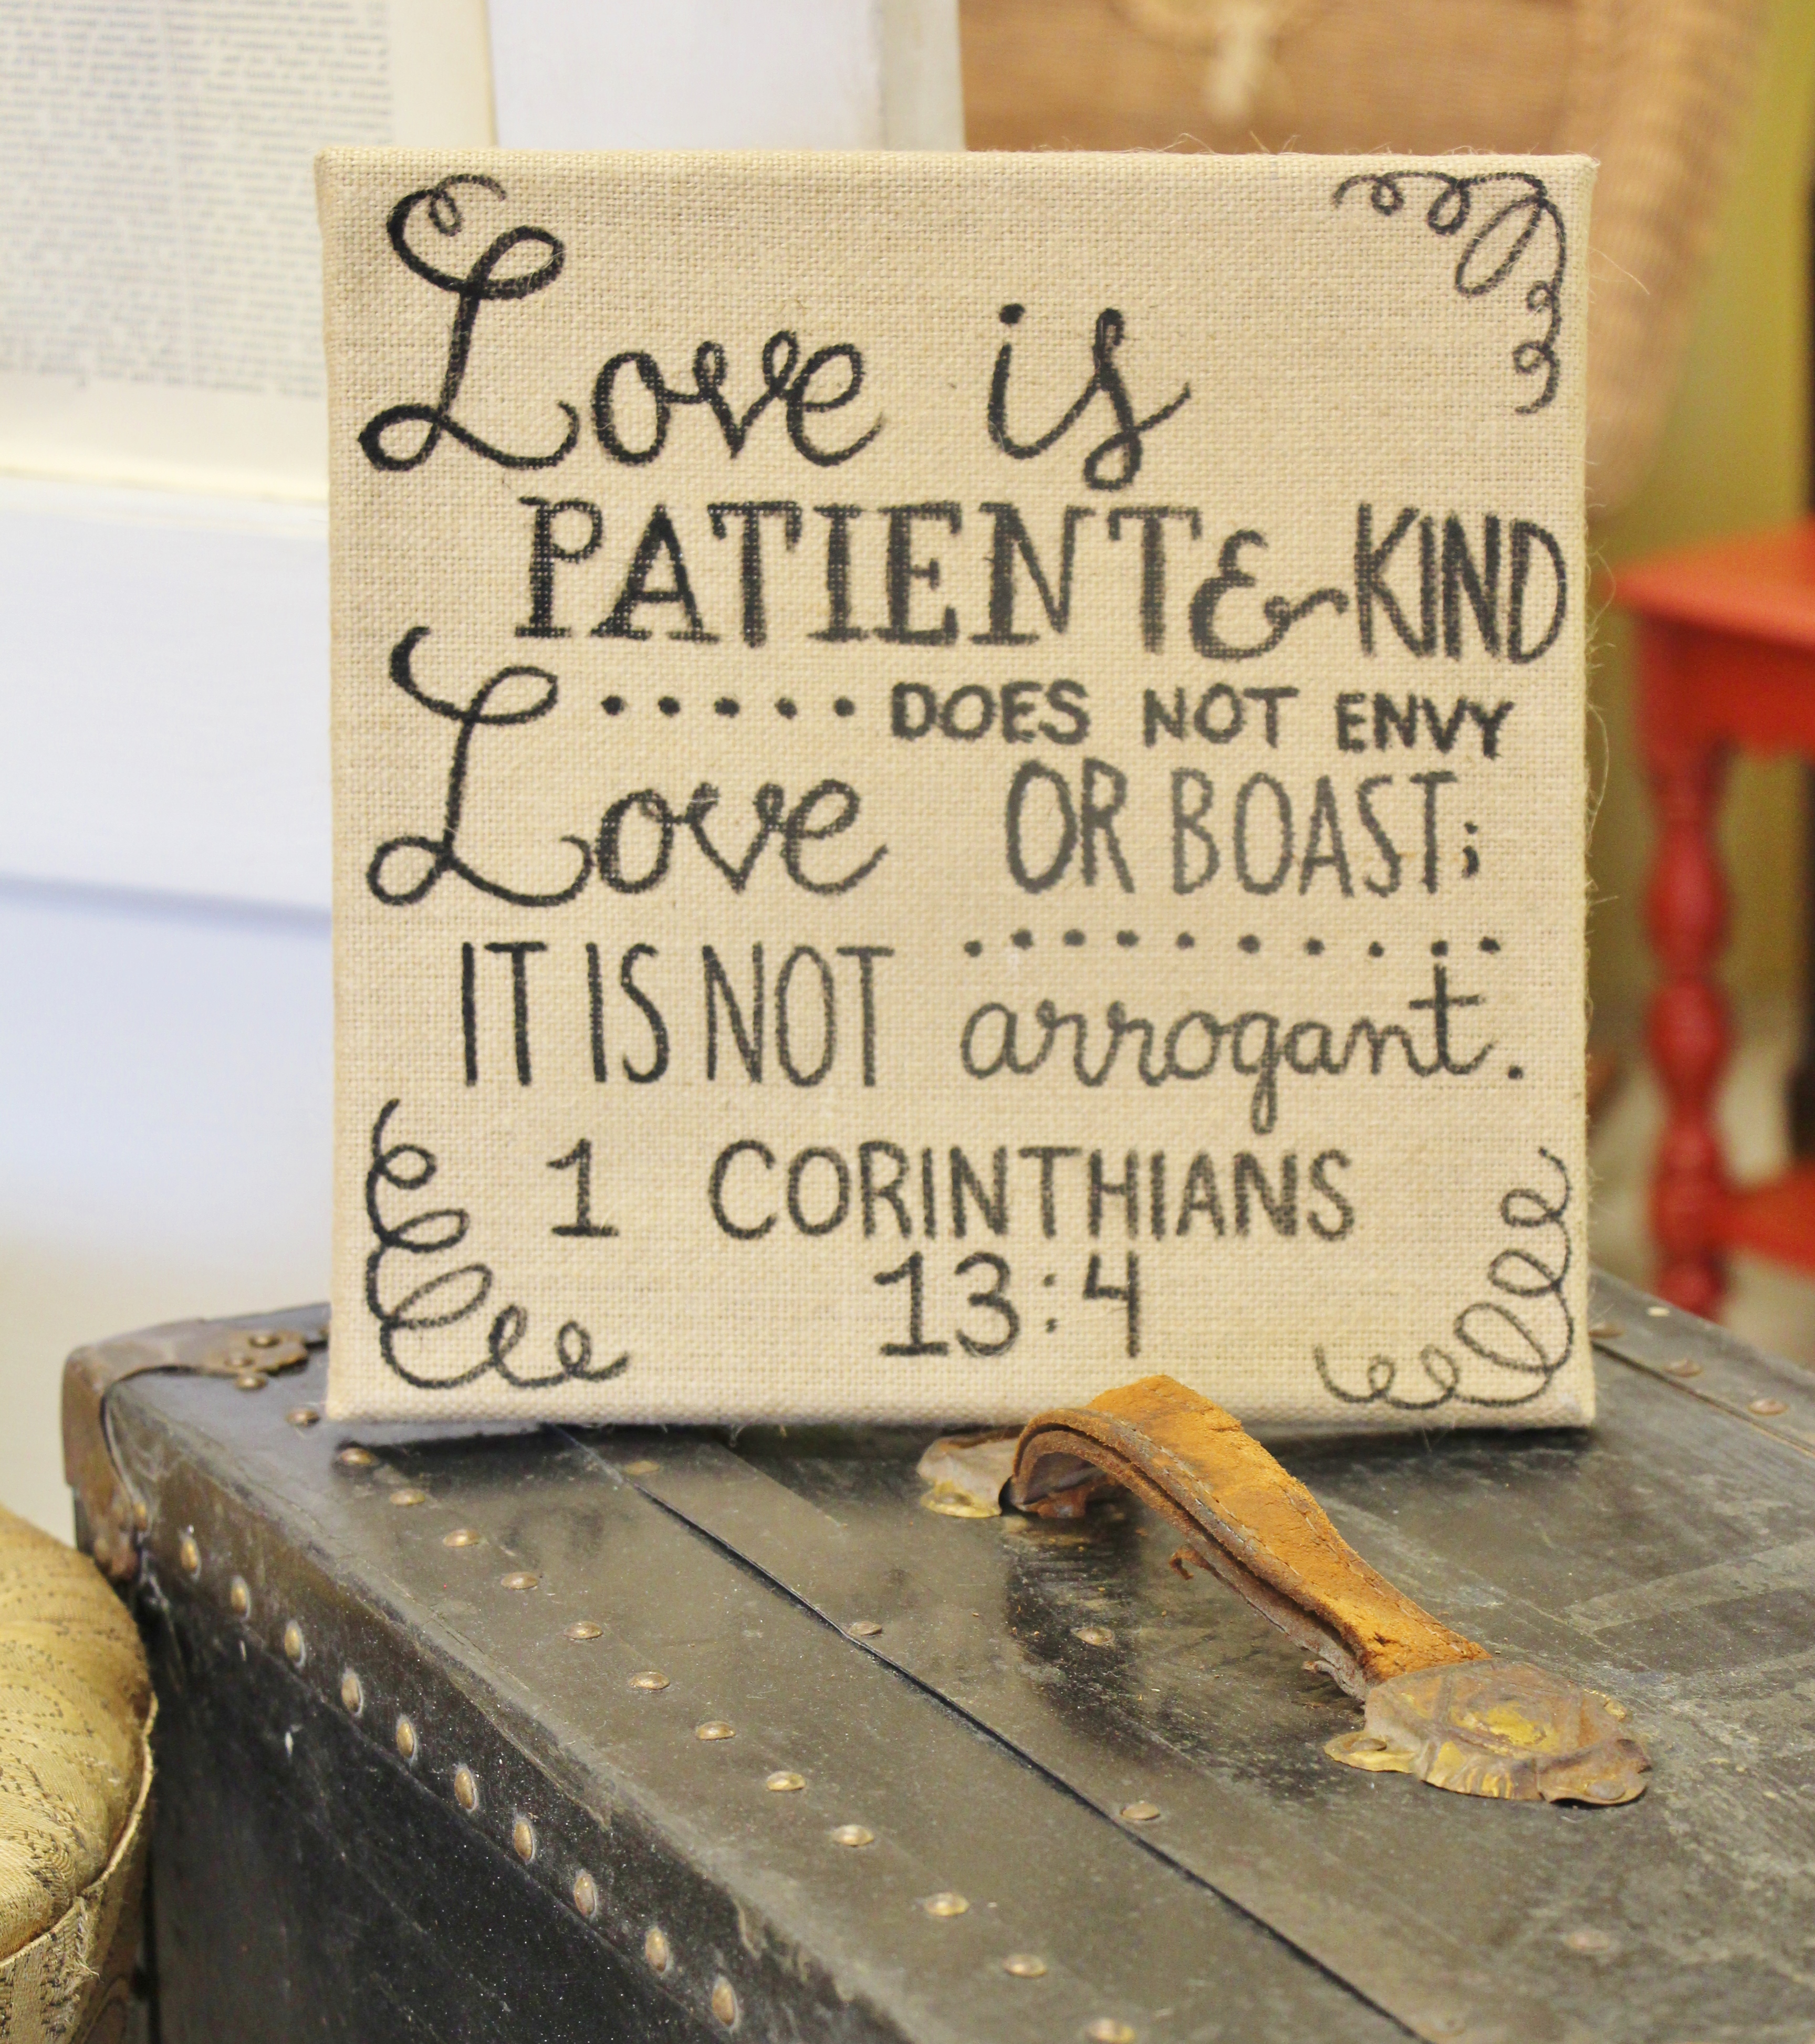 Love is
PATIENT & KIND
Love DOES NOT ENVY
OR BOAST;
IT IS NOT arrogant.
1 CORINTHIANS
13:4